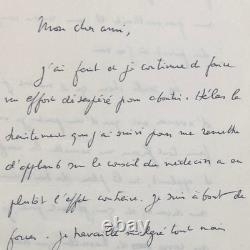 Mon cher ami,
j'ai fait et je continue de faire
un effort désespéré pour aboutir. Hélas le
traitement que j'ai suivi pour me remettre
d'aplomb sur le conseil du médecin a eu
plutôt l'effet contraire. Je suis à bout de
forces. Je travaille malgré tout mais
ebay